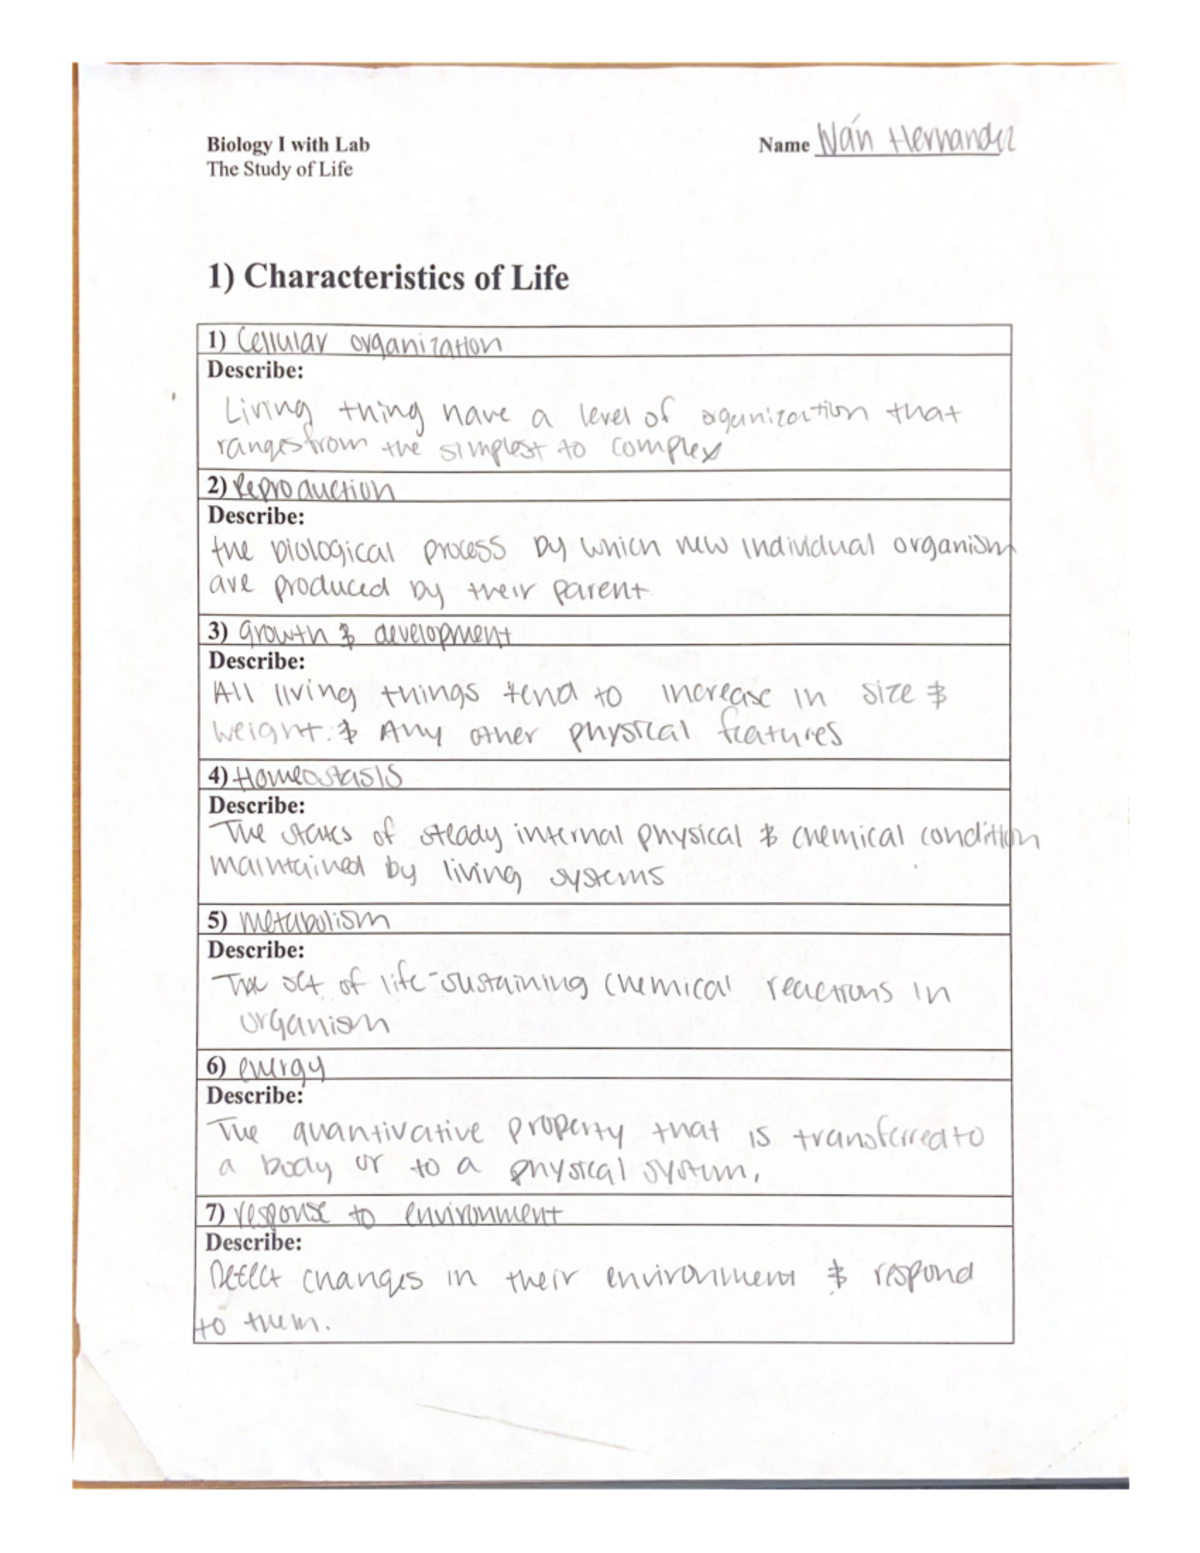 Biology I with Lab
Name Iván Hernandez
The Study of Life
1) Characteristics of Life
1) Cellular organization
Describe:
Living thing have a level of organization that
ranges from the simplest to complex
2) Reproduction
Describe:
the biological process by which new individual organism
are produced by their parent
3) Growth & development
Describe:
All living things tend to increase in size &
weight. & Any other physical features
4) Homeostasis
Describe:
The states of steady internal physical & chemical condition
maintained by living systems
5) metabolism
Describe:
The set of life-sustaining chemical reactions in
organism
6) energy
Describe:
The quantivative property that is transferred to
a body or to a physical system.
7) response to environment
Describe:
Detect changes in their environment & respond
to them.